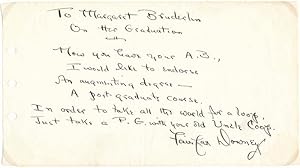 To Margaret
On Her Graduation
Now you have your A.B.,
I would like to endorse
An augmenting degree —
A post graduate course.
In order to take all the world for a loop,
Just take a P.G. with your old Uncle Coop.
Fairfax Downey